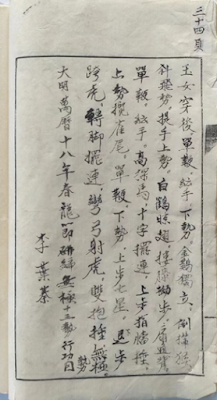 三十四頁
玉女穿梭，單鞭，紜手，下勢，金鷄獨立，倒攆猴，
斜飛勢，提手上勢，白鶴晾翅，摟膝拗步，扇通背，
單鞭，紜手，高探馬，十字擺連，上步指膳捶，
上勢攬雀尾，單鞭，下勢，上步七星，退步
跨虎，轉脚擺連，彎弓射虎，雙抱捶，無極勢
大明萬曆十八年春龍節硏績無極十三勢行功目
李葉蓁